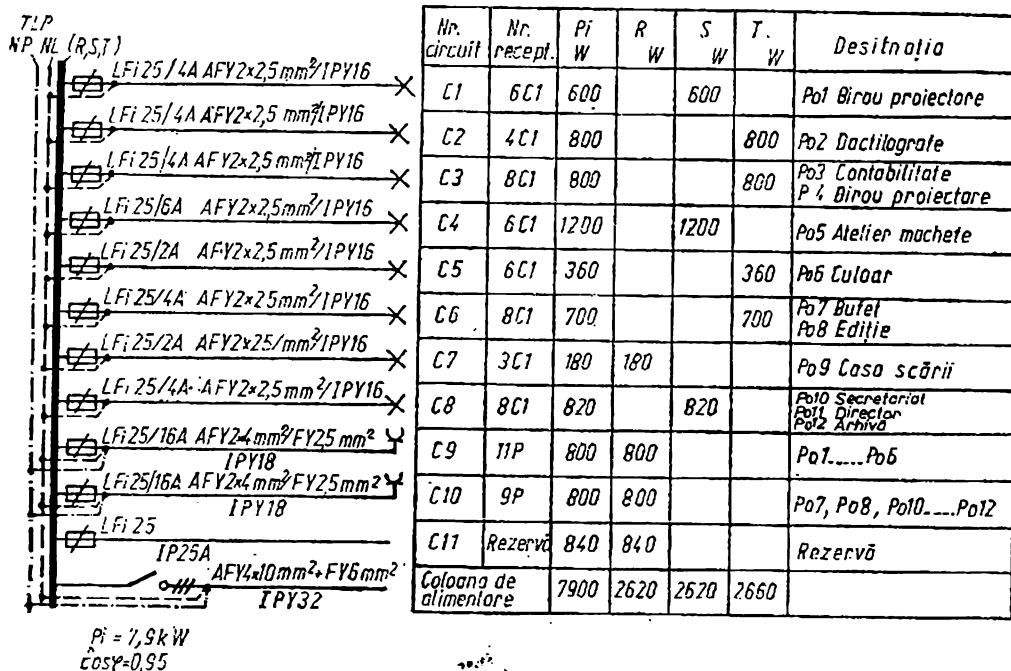 TLP
NP NL (R,S,T)
LFi 25/4A AFY2×2,5 mm²/IPY16
LFi 25/4A AFY2×2,5 mm²/IPY16
LFi 25/4A AFY2×2,5 mm²/IPY16
LFi 25/6A AFY2×2,5 mm²/IPY16
LFi 25/2A AFY2×2,5 mm²/IPY16
LFi 25/4A AFY2×25 mm²/IPY16
LFi 25/2A AFY2×25/mm²/IPY16
LFi 25/4A AFY2×2,5 mm²/IPY16
LFi25/16A AFY2×4 mm²/FY2,5 mm²
IPY18
LFi25/16A AFY2×4 mm²/FY25 mm²
IPY18
LFi 25
IP25A
AFY4×10mm²+FY6mm²
IPY32
Pi = 7,9kW
cosφ=0,95
Nr. circuit Nr. recept. Pi W R W S W T. W Desitnația
C1 6C1 600 600 Po1 Birou proiectare
C2 4C1 800 800 Po2 Dactilografe
C3 8C1 800 800 Po3 Contabilitate
P 4 Birou proiectare
C4 6C1 1200 1200 Po5 Atelier machete
C5 6C1 360 360 Po6 Culoar
C6 8C1 700 700 Po7 Bufet
Po8 Ediție
C7 3C1 180 180 Po9 Casa scării
C8 8C1 820 820 Po10 Secretariat
Po11 Director
Po12 Arhivă
C9 11P 800 800 Po1.....Po6
C10 9P 800 800 Po7, Po8, Po10....Po12
C11 Rezervă 840 840 Rezervă
Coloana de alimentare 7900 2620 2620 2660